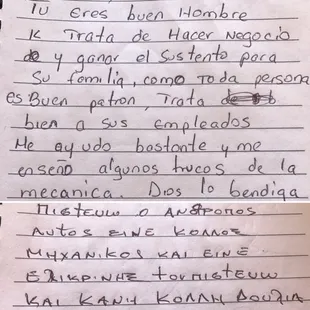 Tu eres buen Hombre
K Trata de Hacer Negocio
y ganar el Sustento para
Su familia, como Toda persona
es Buen patron, Trata
bien a sus empleados
Me ayudo bastante y me
enseño algunos trucos de la
mecanica. Dios lo bendiga
ΠΙΣΤΕΥω Ο ΑΝΘΡΟΠΟΣ
ΑυΤΟΣ ΕΙΝΕ ΚΟΛΛΟΣ
ΜΗΧΑΝΙΚΟΣ ΚΑΙ ΕΙΝΕ
ΕΛΙΚΡΙΝΗΣ ΤΟΝ ΠΙΣΤΕΥω
ΚΑΙ ΚΑΝΗ ΚΟΛΛΗ ΔΟυΛΙΑ